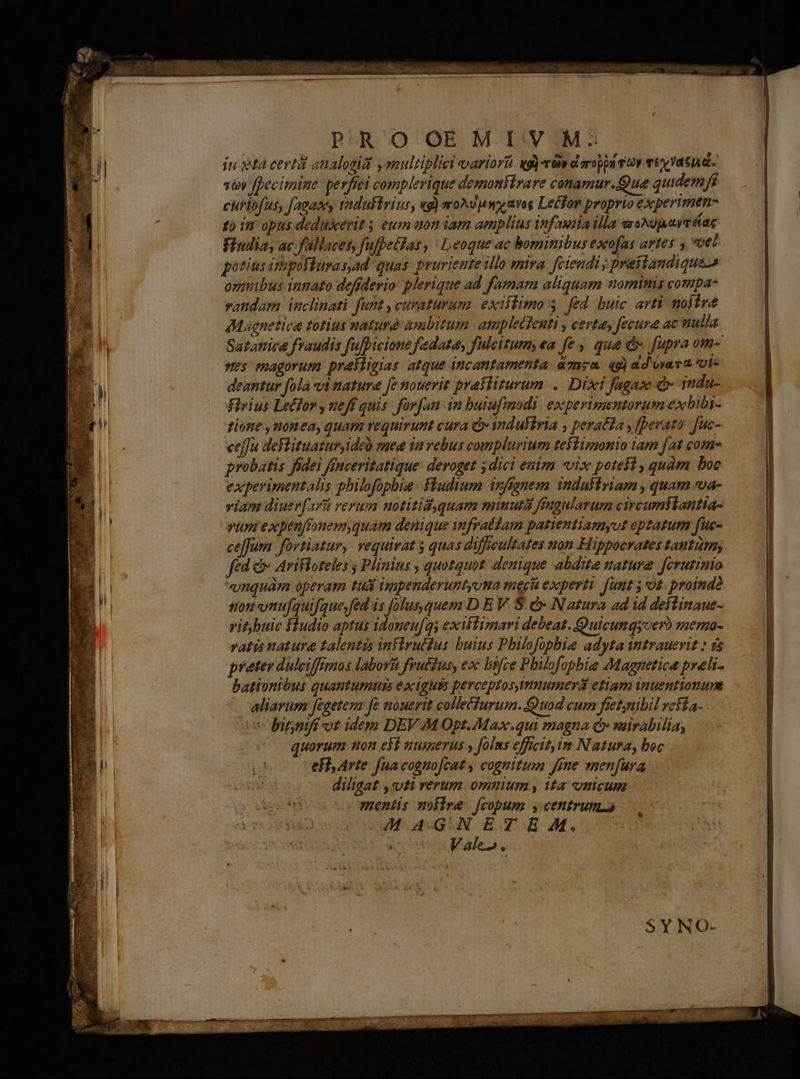 PROOEMIVM.
in istâ certâ analogiâ, multiplici variorũ καὶ τῶν ἀποῤῥήτων τεχνασμά-
των specimine perfici complerique demonstrare conamur. Quæ quidem si
curiosus, sagax, industrius, καὶ πολυμήχανος Lector proprio experimen-
to in opus deduxerit; eum non iam amplius infamia illa πολυμαντείας
studia, ac fallaces, suspectas, Deoque ac hominibus exosas artes, vel
potius imposturas, ad quas pruriente illo mira sciendi, præstandique
omnibus innato desiderio plerique ad famam aliquam nominis compa-
randam inclinati sunt, curaturum existimo; sed huic arti nostræ
Magneticæ totius naturæ ambitum amplectenti, certæ, securæ ac nulla
Satanicæ fraudis suspicione fœdatæ, fulcitum, ea se, quæ & supra om-
nes magorum præstigias atque incantamenta ἄπιστα καὶ ἀδύνατα vi-
deantur sola vi naturæ se nouerit præstiturum. Dixi sagax & indu-
strius Lector, nessi quis forsan in huiusmodi experimentorum exhibi-
tione, nonea, quam requirunt cura & industria, peracta, sperato suc-
cessu destituatur, ideò meæ in rebus complurium testimonio iam sat com-
probatis fidei sinceritatique deroget; dici enim vix potest, quàm hoc
experimentalis philosophiæ studium insignem industriam, quam va-
riam diuersarũ rerum notitiâ, quam minutâ singularum circumstantia-
rum expensionem, quàm denique infractam patientiam, vt optatum suc-
cessum sortiatur, requirat; quas difficultates non Hippocrates tantùm,
sed & Aristoteles, Plinius, quotquot denique abditæ naturæ scrutinio
vnquàm operam suã impenderunt, vna mecũ experti sunt; vt proindè
non vnusquisque, sed is solus, quem DEVS & Natura ad id destinaue-
rit, huic studio aptus idoneusq; existimari debeat. Quicunq; verò memo-
ratis naturæ talentis instructus huius Philosophiæ adyta intrauerit; is
præter dulcissimos laborũ fructus, ex hisce Philosophiæ Magneticæ præli-
bationibus quantumuis exiguis perceptos, innumerâ etiam inuentionum
aliarum segetem se nouerit collecturum. Quod cum fiet, nihil resta-
bit, nisi vt idem DEV M Opt. Max. qui magna & mirabilia,
quorum non est numerus, solus efficit, in Natura, hoc
est, Arte sua cognoscat, cognitum sine mensura
diligat, vti rerum omnium, ita vnicum
mentis nostræ scopum, centrum
MAGNETEM.
Vale.
SYNO-